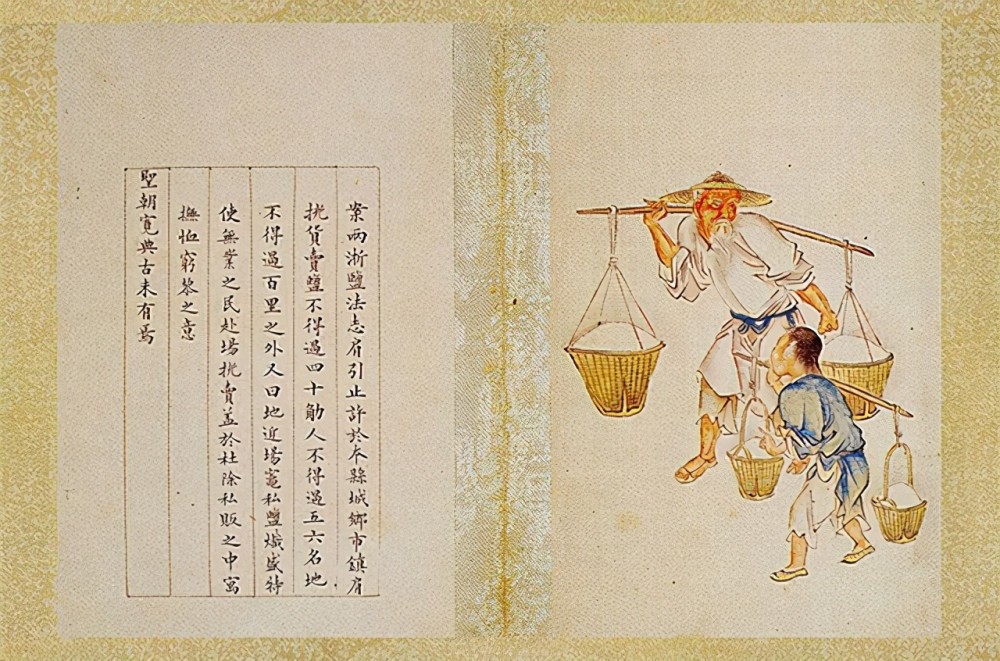 案兩浙鹽法志肩引止許於本縣城鄉市鎮肩
挑貨賣鹽不得過四十觔人不得過五六名地
不得過百里之外又曰地近場竈私鹽熾盛特
使無業之民赴場挑賣蓋於杜除私販之中寓
撫恤窮黎之意
聖朝寬典古未有焉